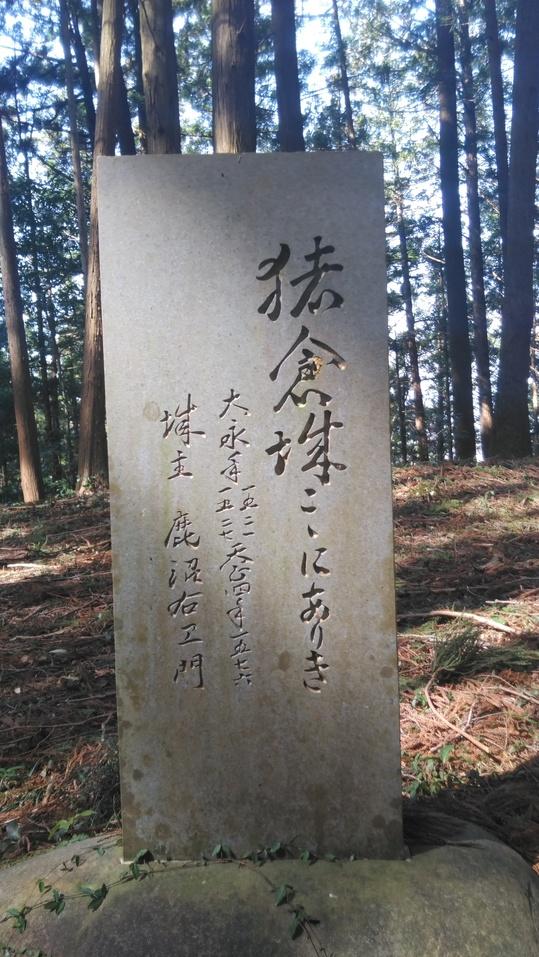 猪倉城こゝにありき
大永年一五二一一五二七天正四年一五七六
城主 鹿沼右エ門